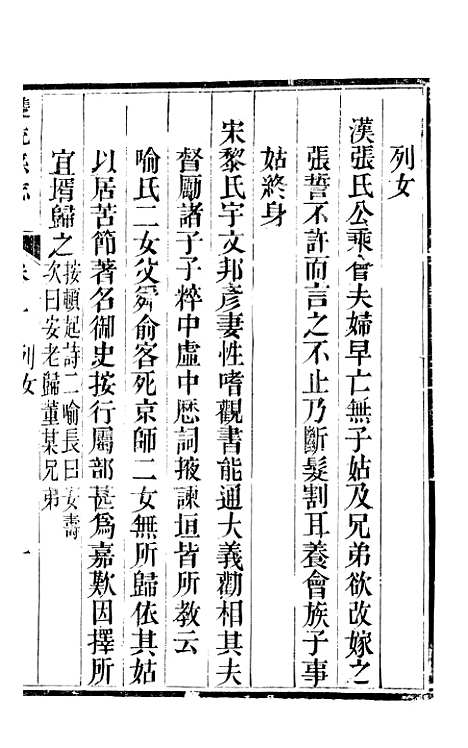 列女
漢張氏公乘會夫婦早亡無子姑及兄弟欲改嫁之
張誓不許而言之不止乃斷髮割耳養會族子事
姑終身
宋黎氏宇文邦彥妻性嗜觀書能通大義勸相其夫
督勵諸子子粹中虛中愿詞掖諫垣皆所教云
喻氏二女父舜俞客死京師二女無所歸依其姑
以居苦節著名御史按行屬部甚為嘉歎因擇所
宜壻歸之按頓起詩二喻長曰安壽
次曰安老歸董某兄弟
雙流縣志
列女
一